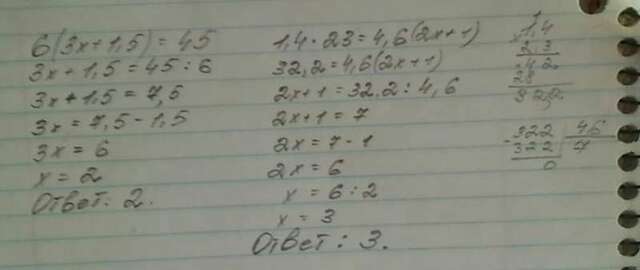 6(3x+1,5)=45
3x+1,5=45:6
3x+1,5=7,5
3x=7,5-1,5
3x=6
x=2
Ответ: 2.
1,4·23=4,6(2x+1)
32,2=4,6(2x+1)
2x+1=32,2:4,6
2x+1=7
2x=7-1
2x=6
x=6:2
x=3
Ответ: 3.
1,4
2,3
42
28
-322 46
322 7
0